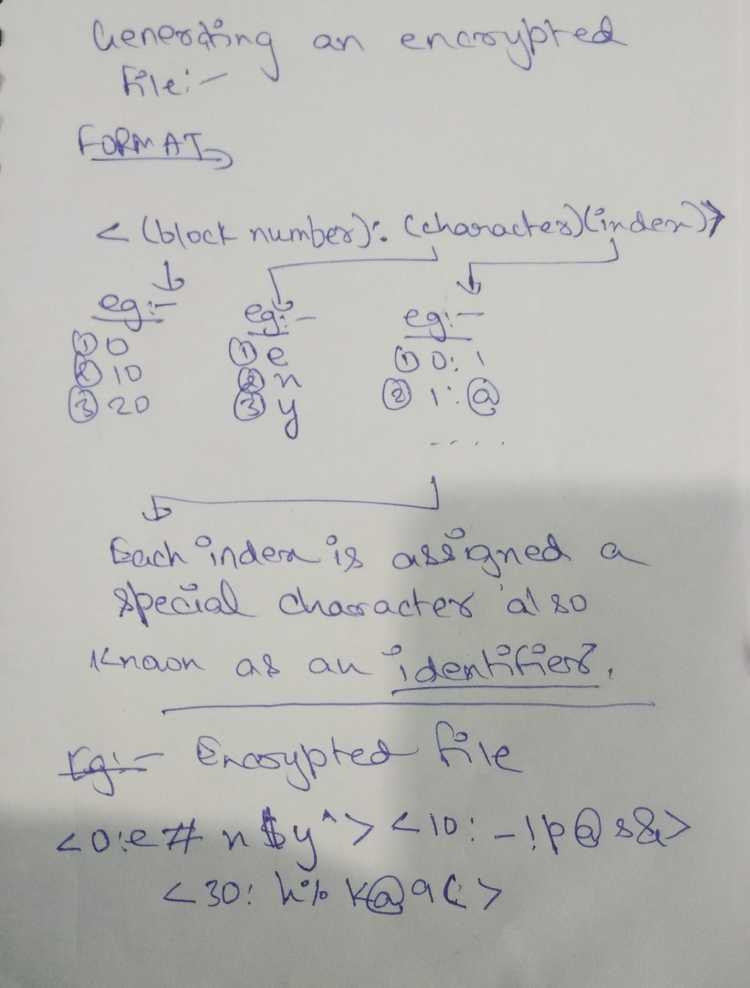 Generating an encrypted
file:-
FORMAT
< (block number): (character)(index)>
eg:- eg:- eg:-
① 0 ① e ① 0: !
② 10 ② n ② 1: @
③ 20 ③ y
.....
Each index is assigned a
special character also
known as an identifier.
Eg:- Encrypted file
<0:e# n$y^> <10: -!p@s&>
<30: h% k@9(>